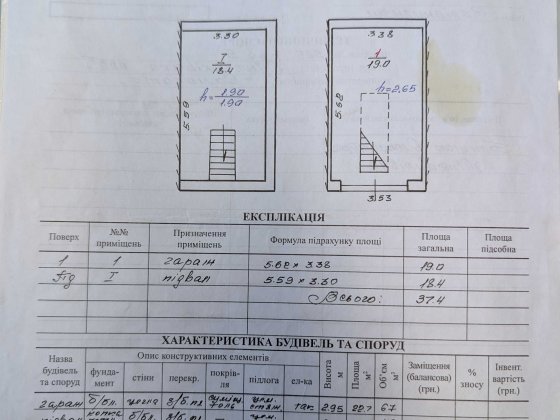 3.30
I
18.4
h= 1.90
1.90
5.59
3.38
1
19.0
h=2.65
5.62
3.53
ЕКСПЛІКАЦІЯ
Поверх №№ приміщень Призначення приміщень Формула підрахунку площі Площа загальна Площа підсобна
1 1 гараж 5.62 x 3.38 19.0
під I підвал 5.59 x 3.30 18.4
Всього: 37.4
ХАРАКТЕРИСТИКА БУДІВЕЛЬ ТА СПОРУД
Назва будівель та споруд Опис конструктивних елементів Висота м Площа м² Об'єм м³ Заміщення (балансова) (грн.) % зносу Інвент. вартість (грн.)
фунда-мент стіни перекр. покрів-ля підлога ел-ка
гараж б/бл. цегла з/б.пл. так 2.95 22.7 67
підвал б/бл. з/б.пл.